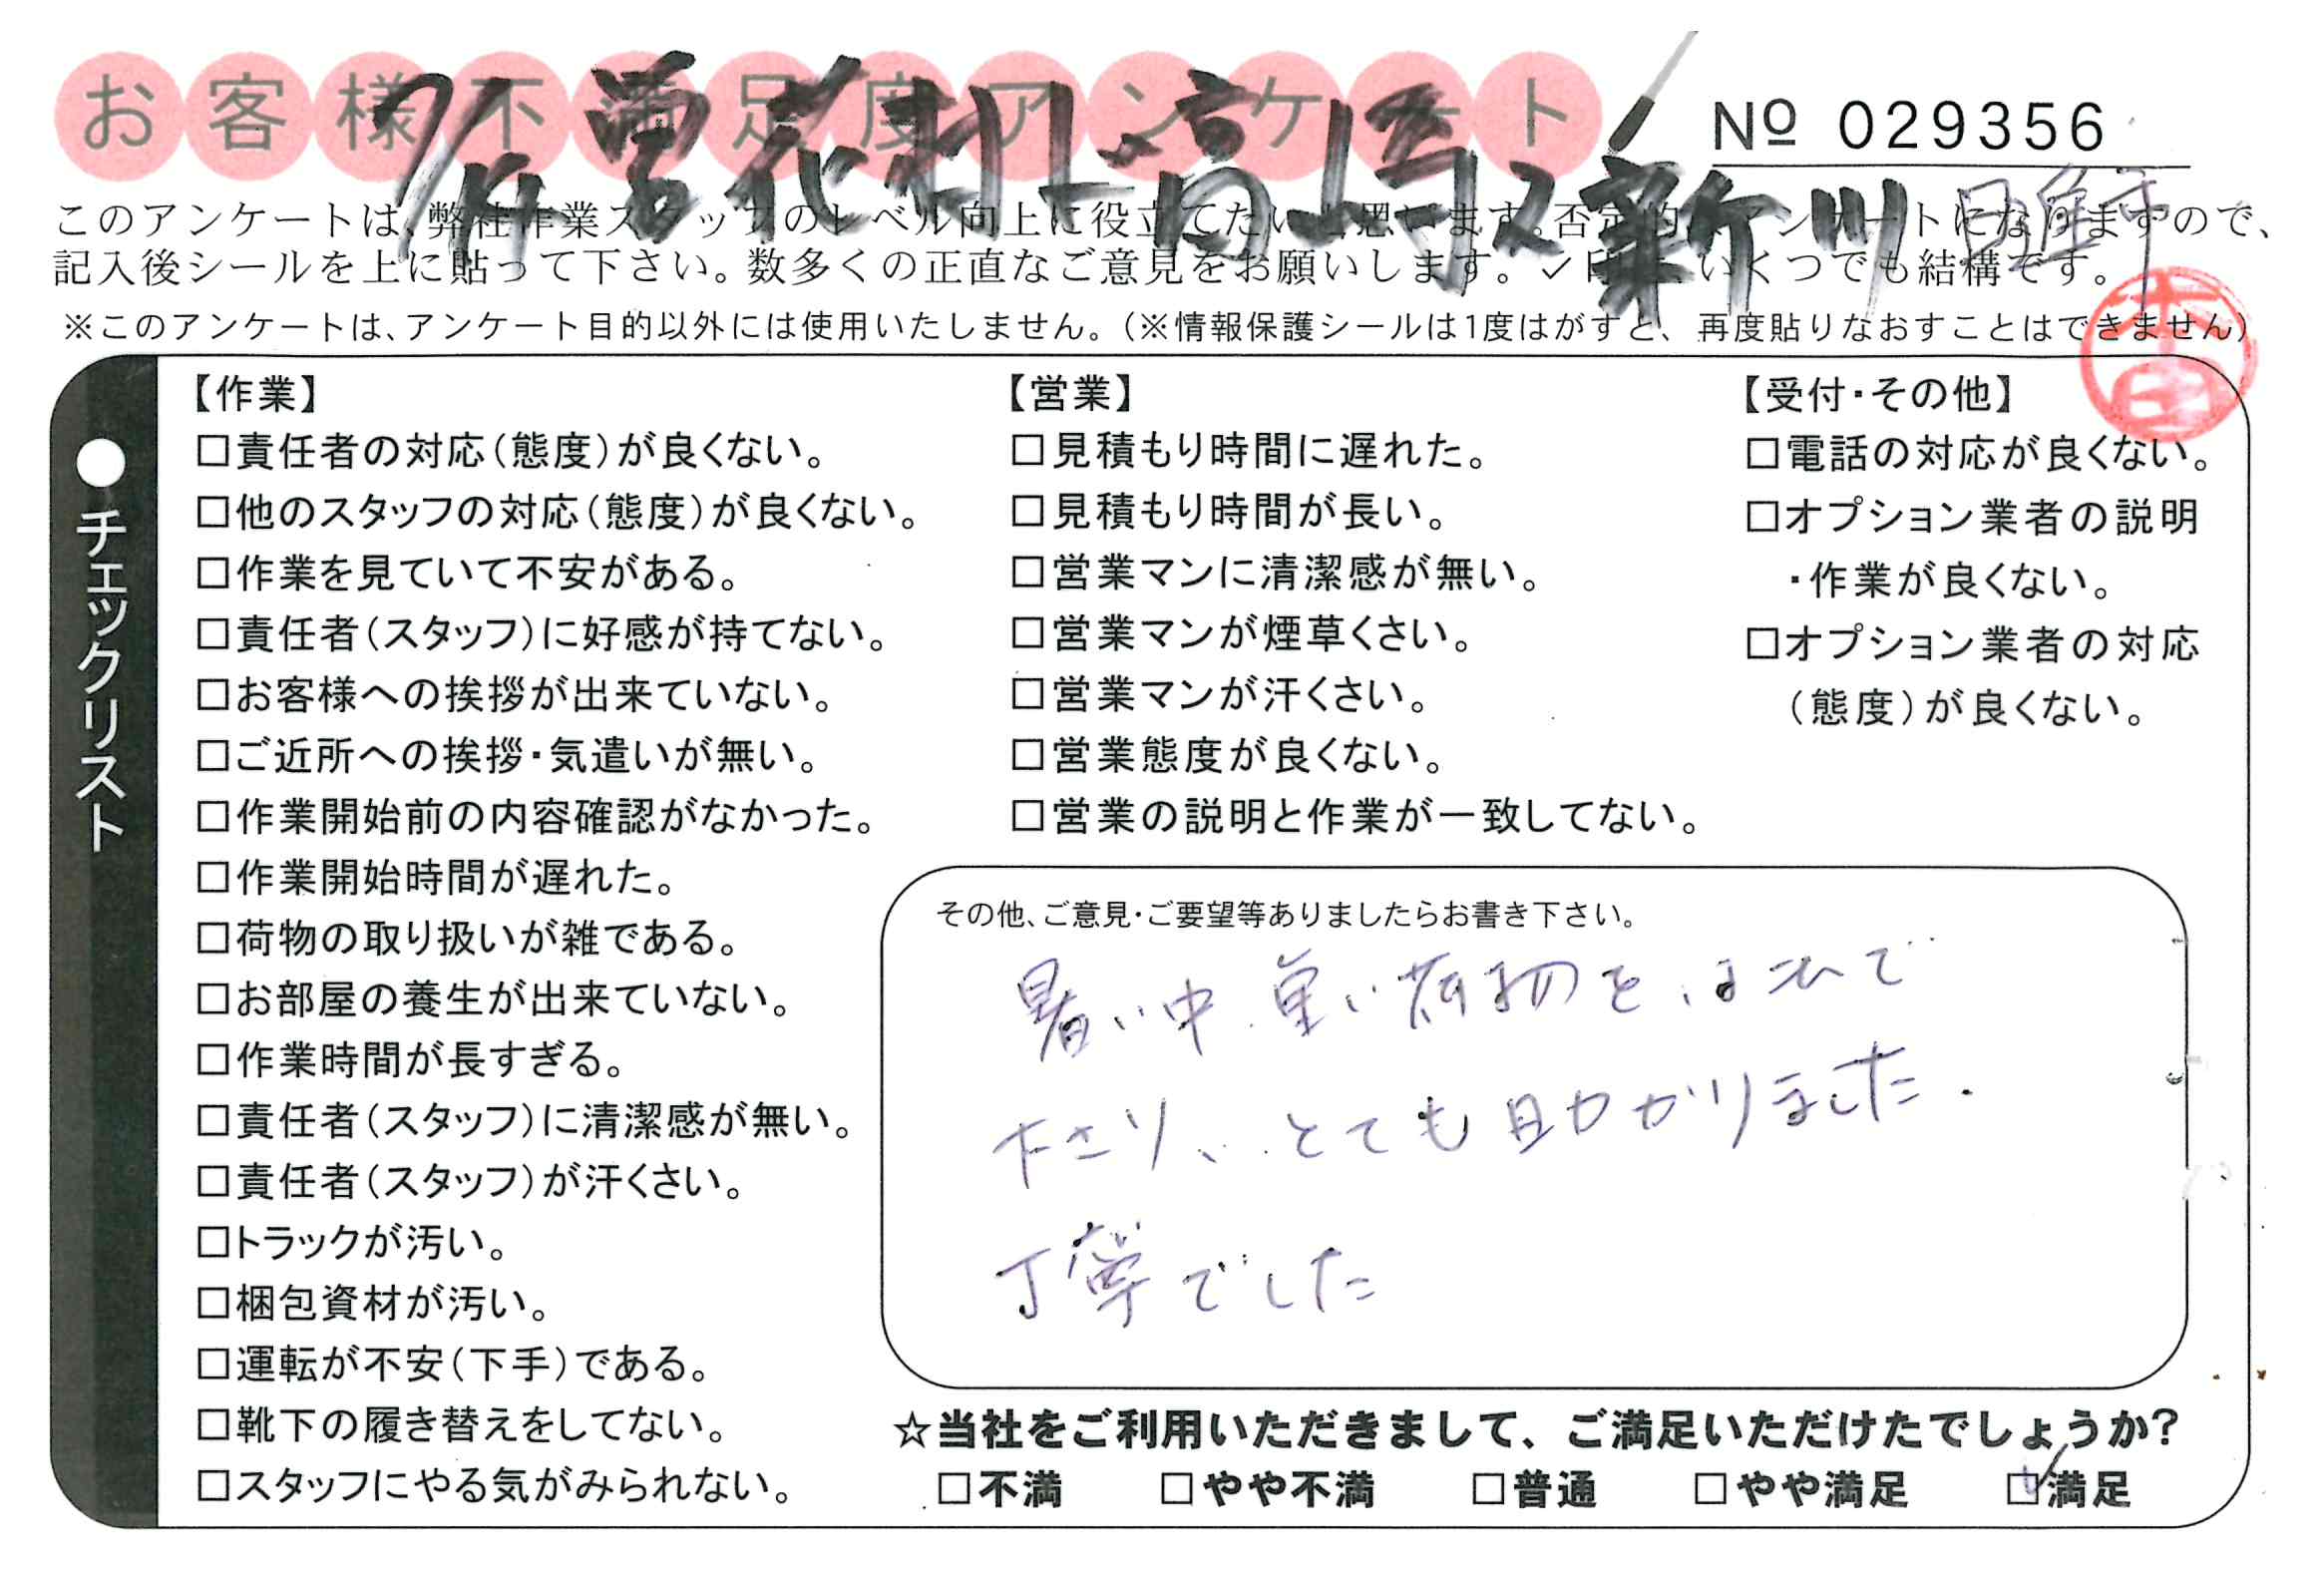 お客様不満足度アンケート
№ 029356
このアンケートは、弊社作業スタッフのレベル向上に役立てたいと思います。否定的なアンケートになりますので、
記入後シールを上に貼って下さい。数多くの正直なご意見をお願いします。✓印は、いくつでも結構です。
※このアンケートは、アンケート目的以外には使用いたしません。（※情報保護シールは1度はがすと、再度貼りなおすことはできません）
●チェックリスト
【作業】
□責任者の対応（態度）が良くない。
□他のスタッフの対応（態度）が良くない。
□作業を見ていて不安がある。
□責任者（スタッフ）に好感が持てない。
□お客様への挨拶が出来ていない。
□ご近所への挨拶・気遣いが無い。
□作業開始前の内容確認がなかった。
□作業開始時間が遅れた。
□荷物の取り扱いが雑である。
□お部屋の養生が出来ていない。
□作業時間が長すぎる。
□責任者（スタッフ）に清潔感が無い。
□責任者（スタッフ）が汗くさい。
□トラックが汚い。
□梱包資材が汚い。
□運転が不安（下手）である。
□靴下の履き替えをしてない。
□スタッフにやる気がみられない。
【営業】
□見積もり時間に遅れた。
□見積もり時間が長い。
□営業マンに清潔感が無い。
□営業マンが煙草くさい。
□営業マンが汗くさい。
□営業態度が良くない。
□営業の説明と作業が一致してない。
【受付・その他】
□電話の対応が良くない。
□オプション業者の説明
・作業が良くない。
□オプション業者の対応
（態度）が良くない。
その他、ご意見・ご要望等ありましたらお書き下さい。
暑い中、重い荷物を、はこんで
下さり、とても助かりました.
丁寧でした
☆当社をご利用いただきまして、ご満足いただけたでしょうか?
□不満 □やや不満 □普通 □やや満足 ☑満足